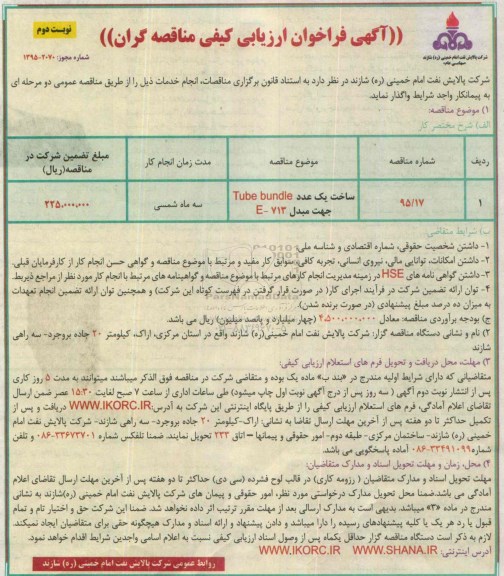 نوبت دوم
((آگهی فراخوان ارزیابی کیفی مناقصه گران))
شرکت پالایش نفت امام خمینی (ره) شازند
شماره مجوز: ۱۳۹۵-۲۰۷۰
شرکت پالایش نفت امام خمینی (ره) شازند در نظر دارد به استناد قانون برگزاری مناقصات، انجام خدمات ذیل را از طریق مناقصه عمومی دو مرحله ای
به پیمانکار واجد شرایط واگذار نماید.
۱) موضوع مناقصه:
الف) شرح مختصر کار
ردیف شماره مناقصه موضوع مناقصه مدت زمان انجام کار مبلغ تضمین شرکت در مناقصه(ریال)
۱ ۹۵/۱۷ ساخت یک عدد Tube bundle جهت مبدل E-۷۱۳ سه ماه شمسی ۲۲۵.۰۰۰.۰۰۰
ب) شرایط متقاضی:
۱- داشتن شخصیت حقوقی، شماره اقتصادی و شناسه ملی.
۲- داشتن امکانات، توانایی مالی، نیروی انسانی، تجربه کافی، سوابق کار مفید و مرتبط با موضوع مناقصه و گواهی حسن انجام کار از کارفرمایان قبلی.
۳- داشتن گواهی نامه های HSE در زمینه مدیریت انجام کارهای مرتبط با موضوع مناقصه و گواهینامه های مرتبط با انجام کار مورد نظر از مراجع ذیربط.
۴- توان ارائه تضمین شرکت در فرآیند اجرای کار( در صورت قرار گرفتن در فهرست کوتاه این شرکت) و همچنین توان ارائه تضمین انجام تعهدات
به میزان ده درصد مبلغ پیشنهادی (در صورت برنده شدن).
ج) بودجه برآوردی مناقصه: معادل ۴.۵۰۰.۰۰۰.۰۰۰ (چهار میلیارد و پانصد میلیون) ریال می باشد.
۲) نام و نشانی دستگاه مناقصه گزار: شرکت پالایش نفت امام خمینی(ره) شازند واقع در استان مرکزی، اراک، کیلومتر ۲۰ جاده بروجرد- سه راهی
شازند
۳) مهلت، محل دریافت و تحویل فرم های استعلام ارزیابی کیفی:
متقاضیانی که دارای شرایط اولیه مندرج در «بند ب» ماده یک بوده و متقاضی شرکت در مناقصه فوق الذکر میباشند میتوانند به مدت ۵ روز کاری
پس از انتشار نوبت دوم آگهی ( سه روز پس از درج آگهی نوبت اول چاپ میشود) طی ساعات اداری از ساعت ۷ صبح لغایت ۱۵:۳۰ عصر ضمن ارسال
تقاضای اعلام آمادگی، فرم های استعلام ارزیابی کیفی را از طریق پایگاه اینترنتی این شرکت به آدرس:WWW.IKORC.IR دریافت و پس از
تکمیل حداکثر تا دو هفته پس از آخرین مهلت ارسال تقاضا به نشانی: اراک-کیلومتر ۲۰ جاده بروجرد- سه راهی شازند- شرکت پالایش نفت امام
خمینی (ره) شازند- ساختمان مرکزی- طبقه دوم- امور حقوقی و پیمانها – اتاق ۲۳۳ تحویل نمایند. ضمنا تلفکس شماره ۳۳۶۷۳۷۰۱-۰۸۶ و تلفن
شماره ۳۳۴۹۱۰۹۹-۰۸۶ آماده پاسخگویی می باشد.
۴) محل، زمان و مهلت تحویل اسناد و مدارک متقاضیان:
مهلت تحویل اسناد و مدارک متقاضیان ( رزومه کاری) در قالب لوح فشرده (سی دی) حداکثر تا دو هفته پس از آخرین مهلت ارسال تقاضای اعلام
آمادگی می باشد.ضمنا محل تحویل مدارک درخواستی مورد نظر، امور حقوقی و پیمان های شرکت پالایش نفت امام خمینی (ره)شازند به نشانی
مندرج در ماده «۳» میباشد. بدیهی است به مدارک ارسالی بعد از مهلت مقرر ترتیب اثر داده نخواهد شد. ضمنا این شرکت حق و اختیار تام و تمام
قبول یا رد هر یک یا کلیه پیشنهادهای رسیده را دارا میباشد و دادن پیشنهاد و ارائه اسناد و مدارک هیچگونه حقی برای متقاضیان ایجاد نمیکند.
لازم به ذکر است دستگاه مناقصه گزار حداقل یکماه پس از وصول اسناد ارزیابی کیفی نسبت به اعلام اسامی واجدین شرایط اقدام خواهد نمود.
آدرس اینترنتی: WWW.IKORC.IR WWW.SHANA.IR
روابط عمومی شرکت پالایش نفت امام خمینی (ره) شازند